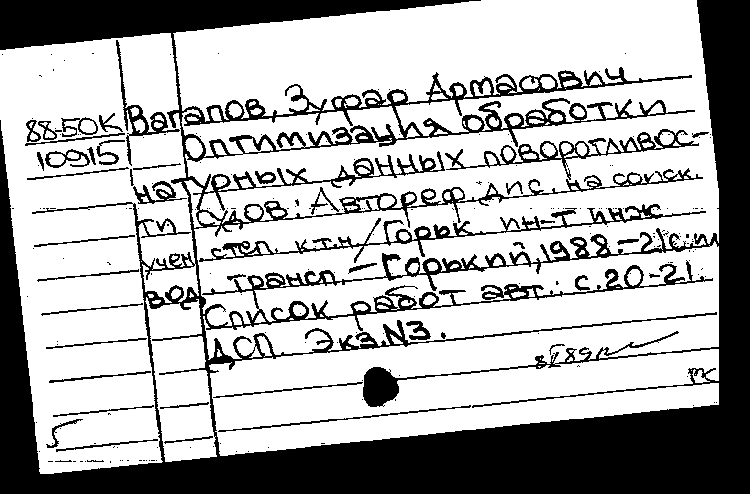 88-50К Вагапов, Зуфар Армасович.
10915 Оптимизация обработки
натурных данных поворотливос-
ти судов: Автореф. дис. на соиск.
учен. степ. к.т.н. / Горьк. ин-т инж
вод. трансп. – Горький, 1988. – 21с.: ил
Список работ авт.: с.20-21.
ДСП. Экз.N3.
5